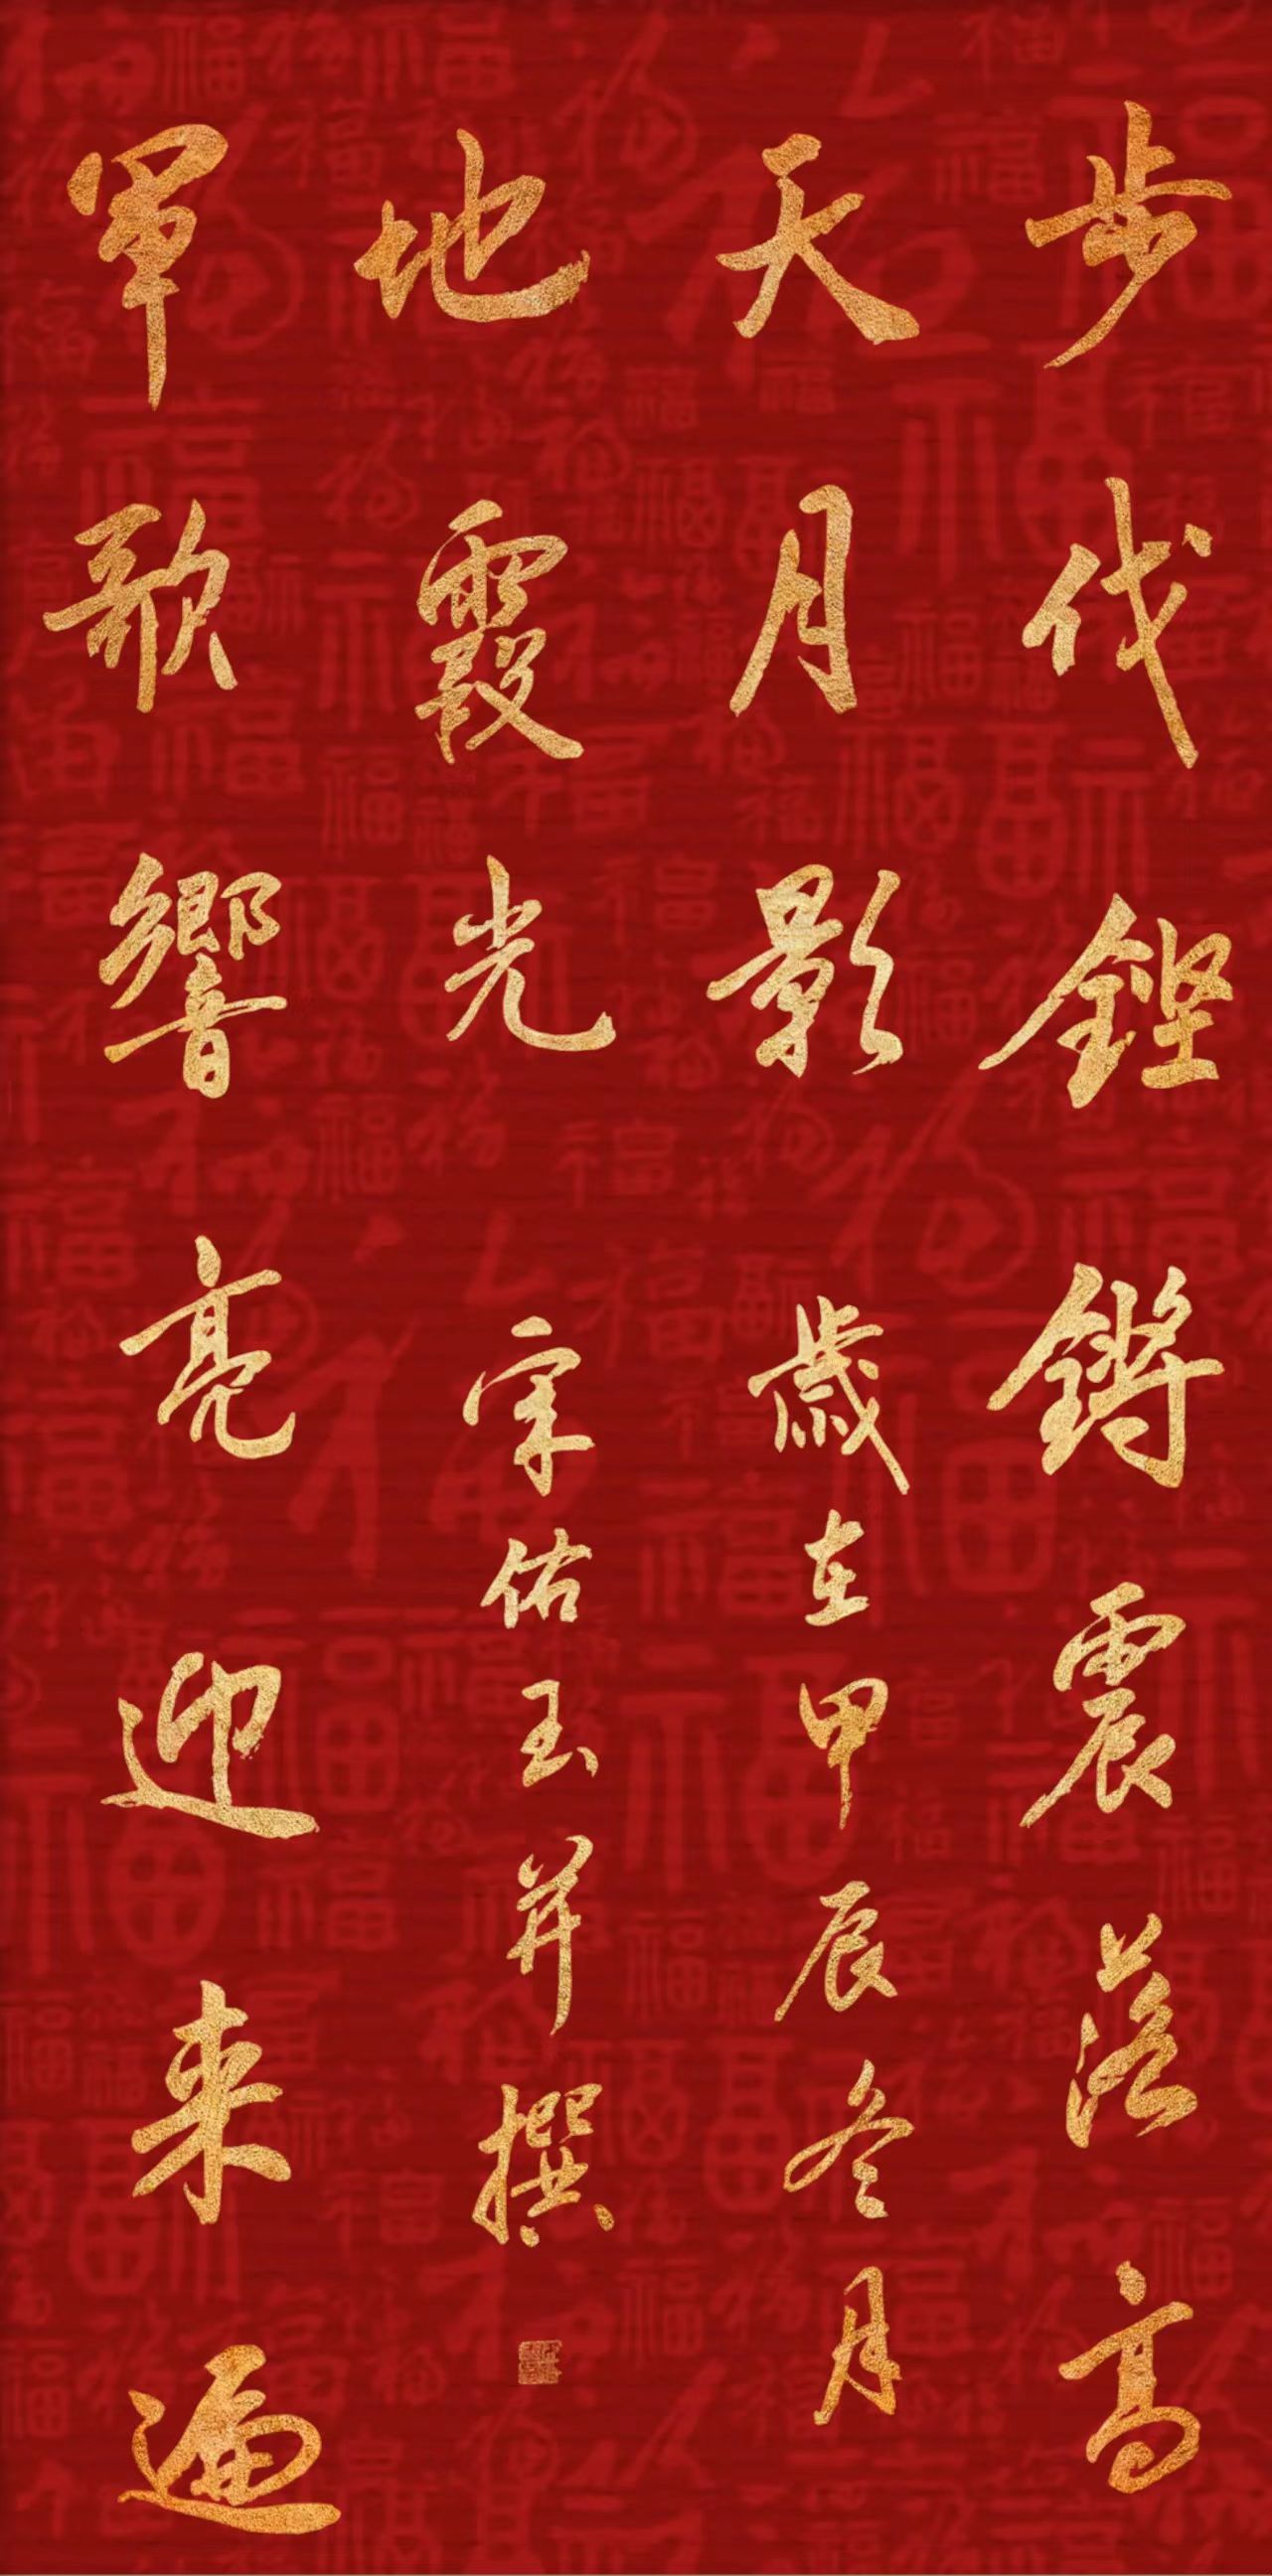 步伐鏗鏘震落高
天月影
歲在甲辰冬月
軍歌響亮迎来遍
地霞光
宋佑玉并撰